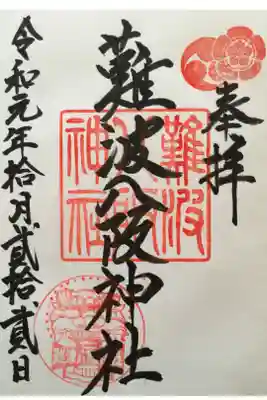 奉拝
難波八阪神社
難波
八阪
神社
令和元年拾月貳拾貳日